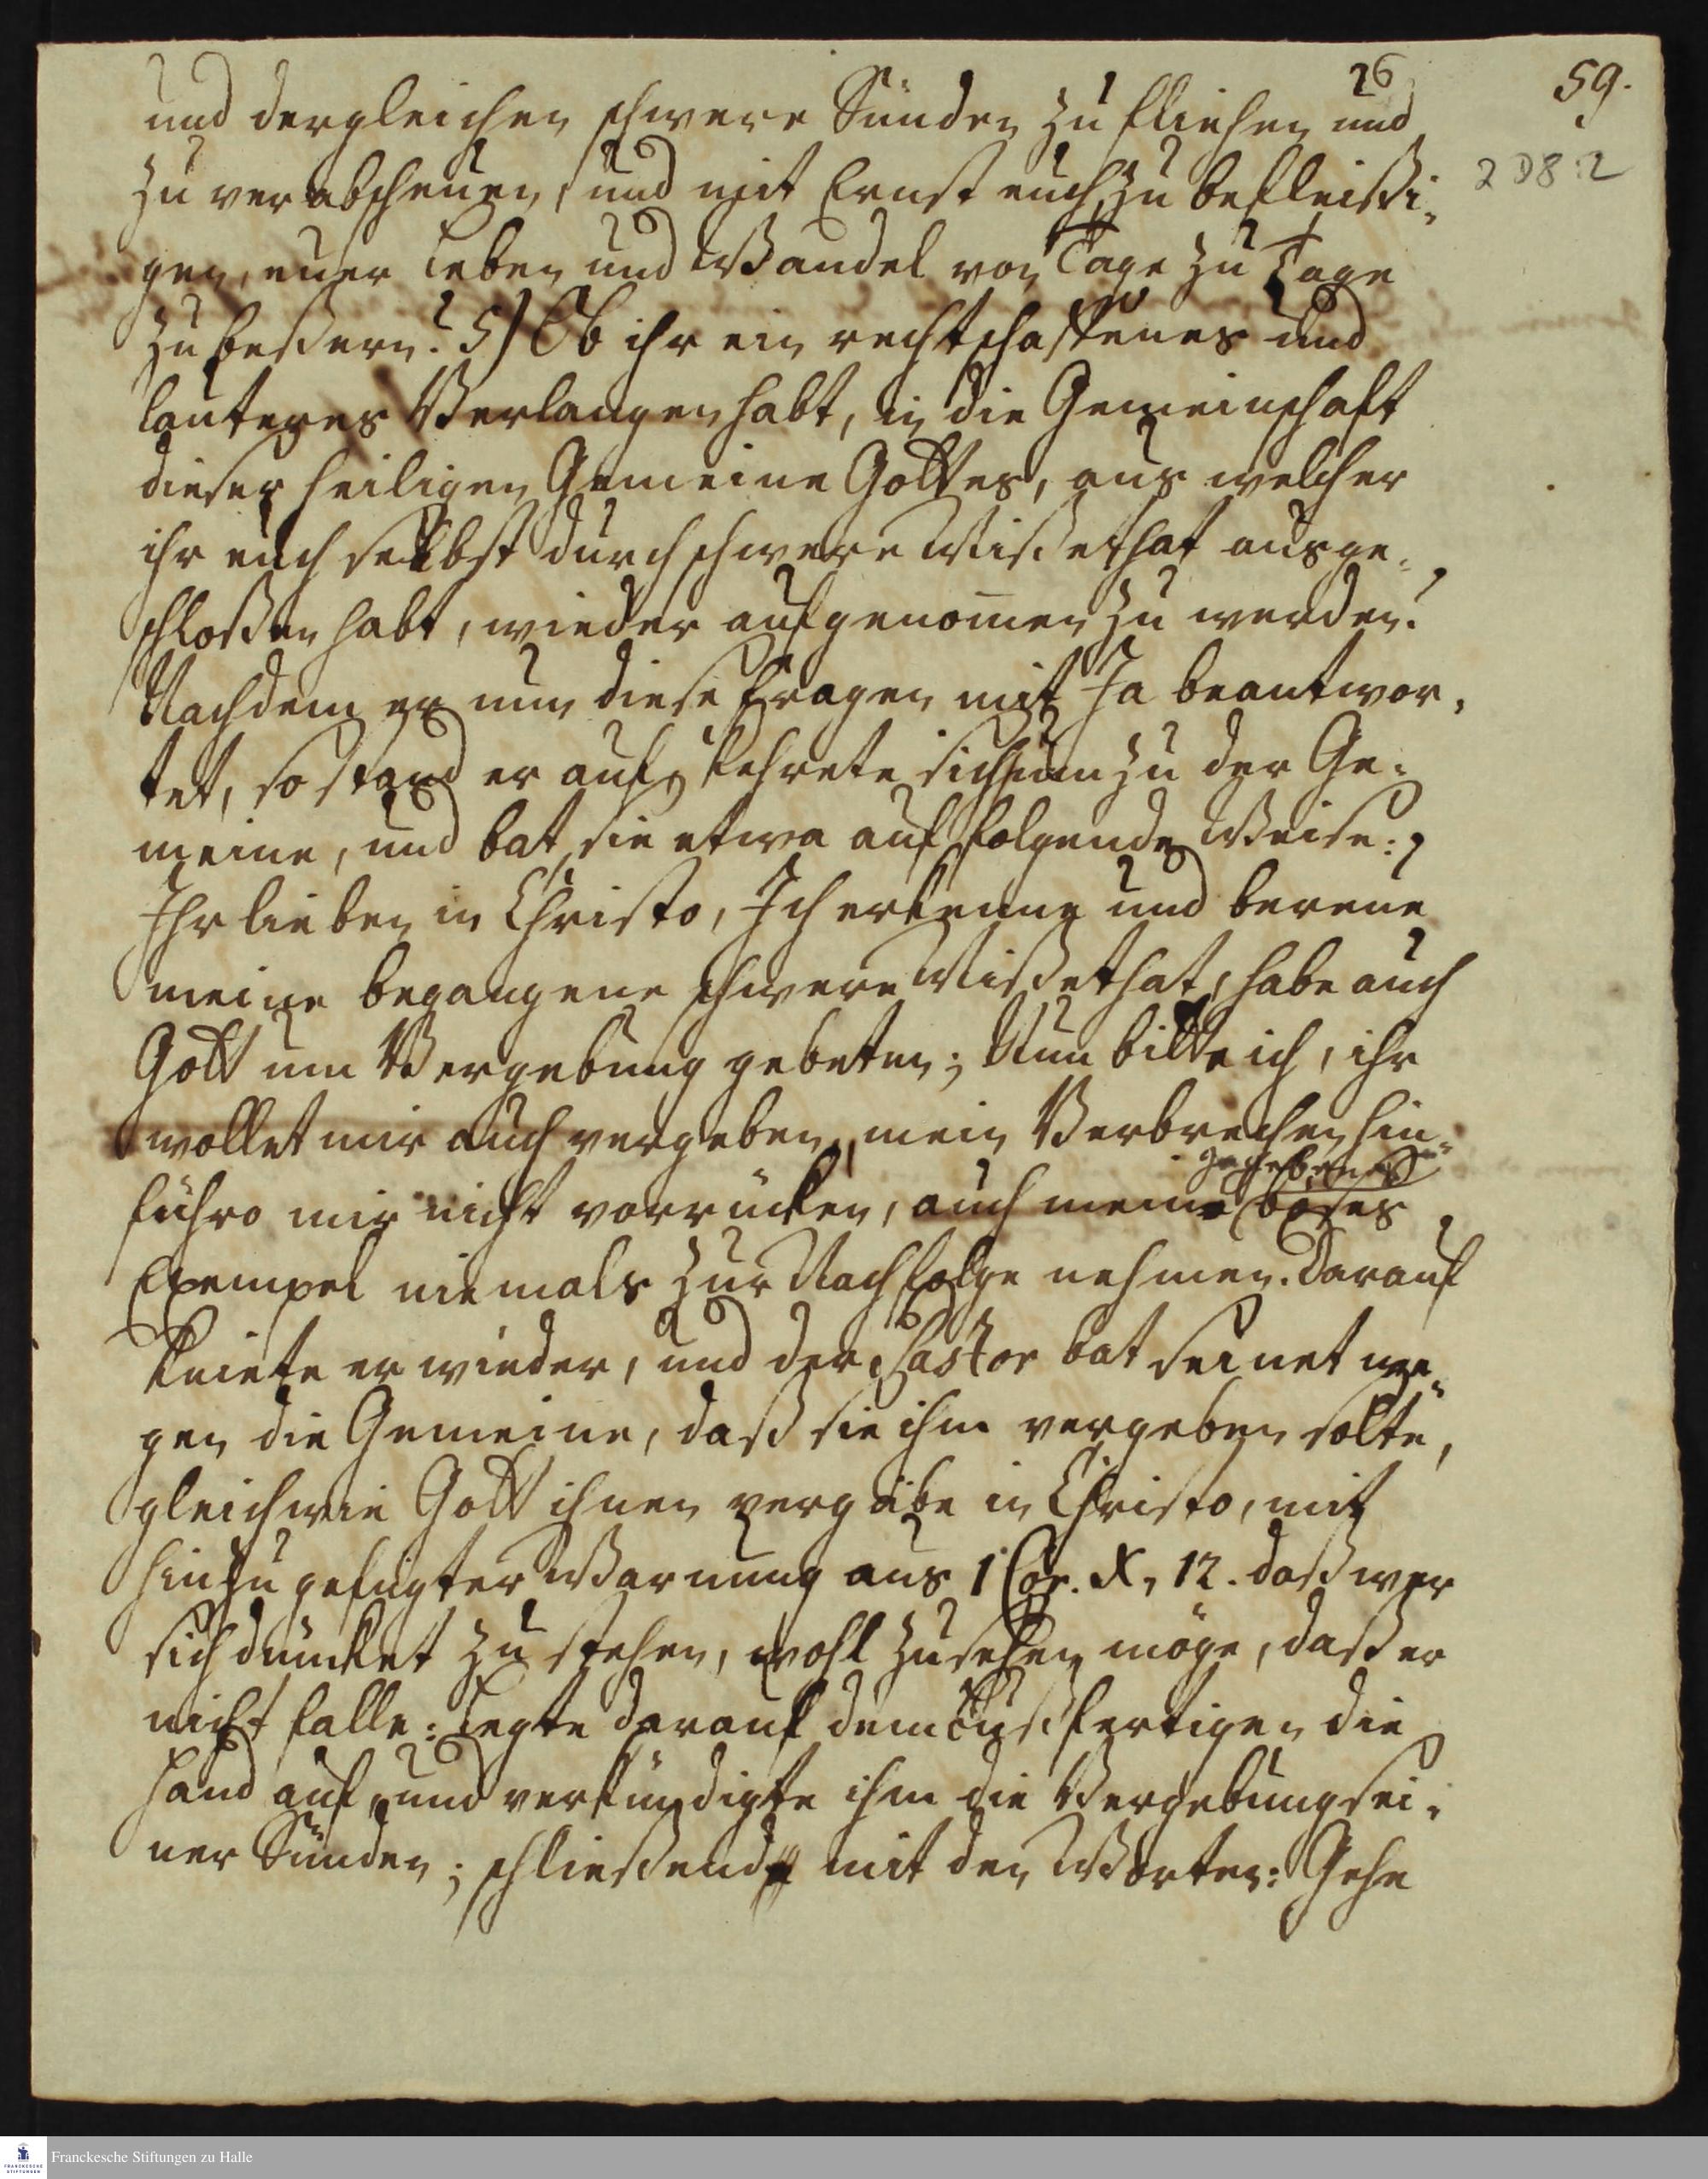 26
59.
2 D8:2
und dergleichen schwere Sünden zu fliehen und
zu verabscheuen, und mit Ernst euch zu befleißi-
gen, euer Leben und Wandel von Tage zu Tage
zu beßern? 5) Ob ihr ein rechtschaffenes und
lauteres Verlangen habt, in die Gemeinschaft
dieser heiligen Gemeine Gottes, aus welcher
ihr euch selbst durch schwere Mißethat ausge-
schloßen habt, wieder aufgenomen zu werden?
Nachdem er nun diese Fragen mit Ja beantwor-
tet, so stand er auf, kehrete sich um zu der Ge-
meine, und bat sie etwa auf folgende Weise:
Ihr lieben in Christo, Ich erkenne und bereue
meine begangene schwere Mißethat, habe auch
Gott um Vergebung gebeten; Nun bitte ich, ihr
wollet mir auch vergeben, mein Verbrechen hin-
gegebenes
führo mir nicht vorrücken, auch mein böses
Exempel niemals zur Nachfolge nehmen. Darauf
kniete er wieder, und der Pastor bat seinet we-
gen die Gemeine, daß sie ihm vergeben solte,
gleichwie Gott ihnen vergäbe in Christo, mit
hinzu gefügter Warnung aus 1 Cor. X, 12. daß wer
sich düncket zu stehen, wohl zusehen möge, daß er
nicht falle: Legte darauf dem Bußfertigen die
Hand auf, und verkündigte ihm die Vergebung sei-
ner Sünden; schließend mit den Worten: Gehe
Franckesche Stiftungen zu Halle
FRANCKESCHE
STIFTUNGEN